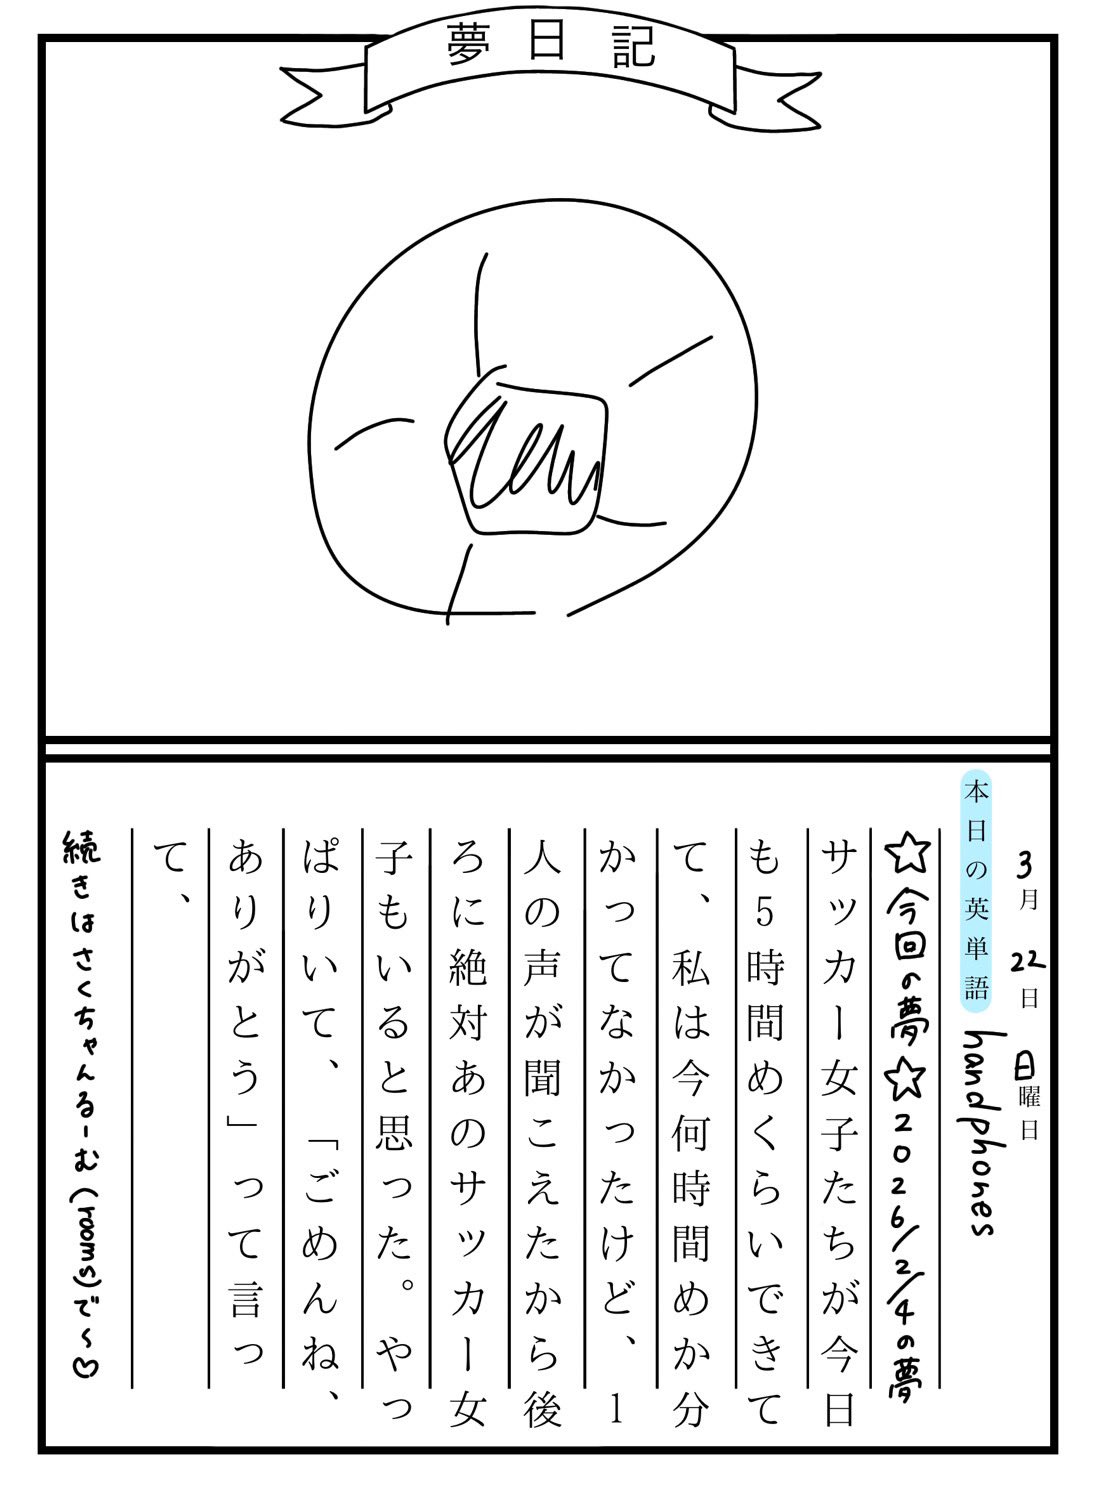 夢日記
3月 22日 日曜日
本日の英単語 handphones
☆今回の夢☆2026/2/4の夢
サッカー女子たちが今日
も5時間めくらいできて
て、私は今何時間めか分
かってなかったけど、1
人の声が聞こえたから後
ろに絶対あのサッカー女
子もいると思った。やっ
ぱりいて、「ごめんね、
ありがとう」って言っ
て、
続きはさくちゃんるーむ(rooms)で〜♡